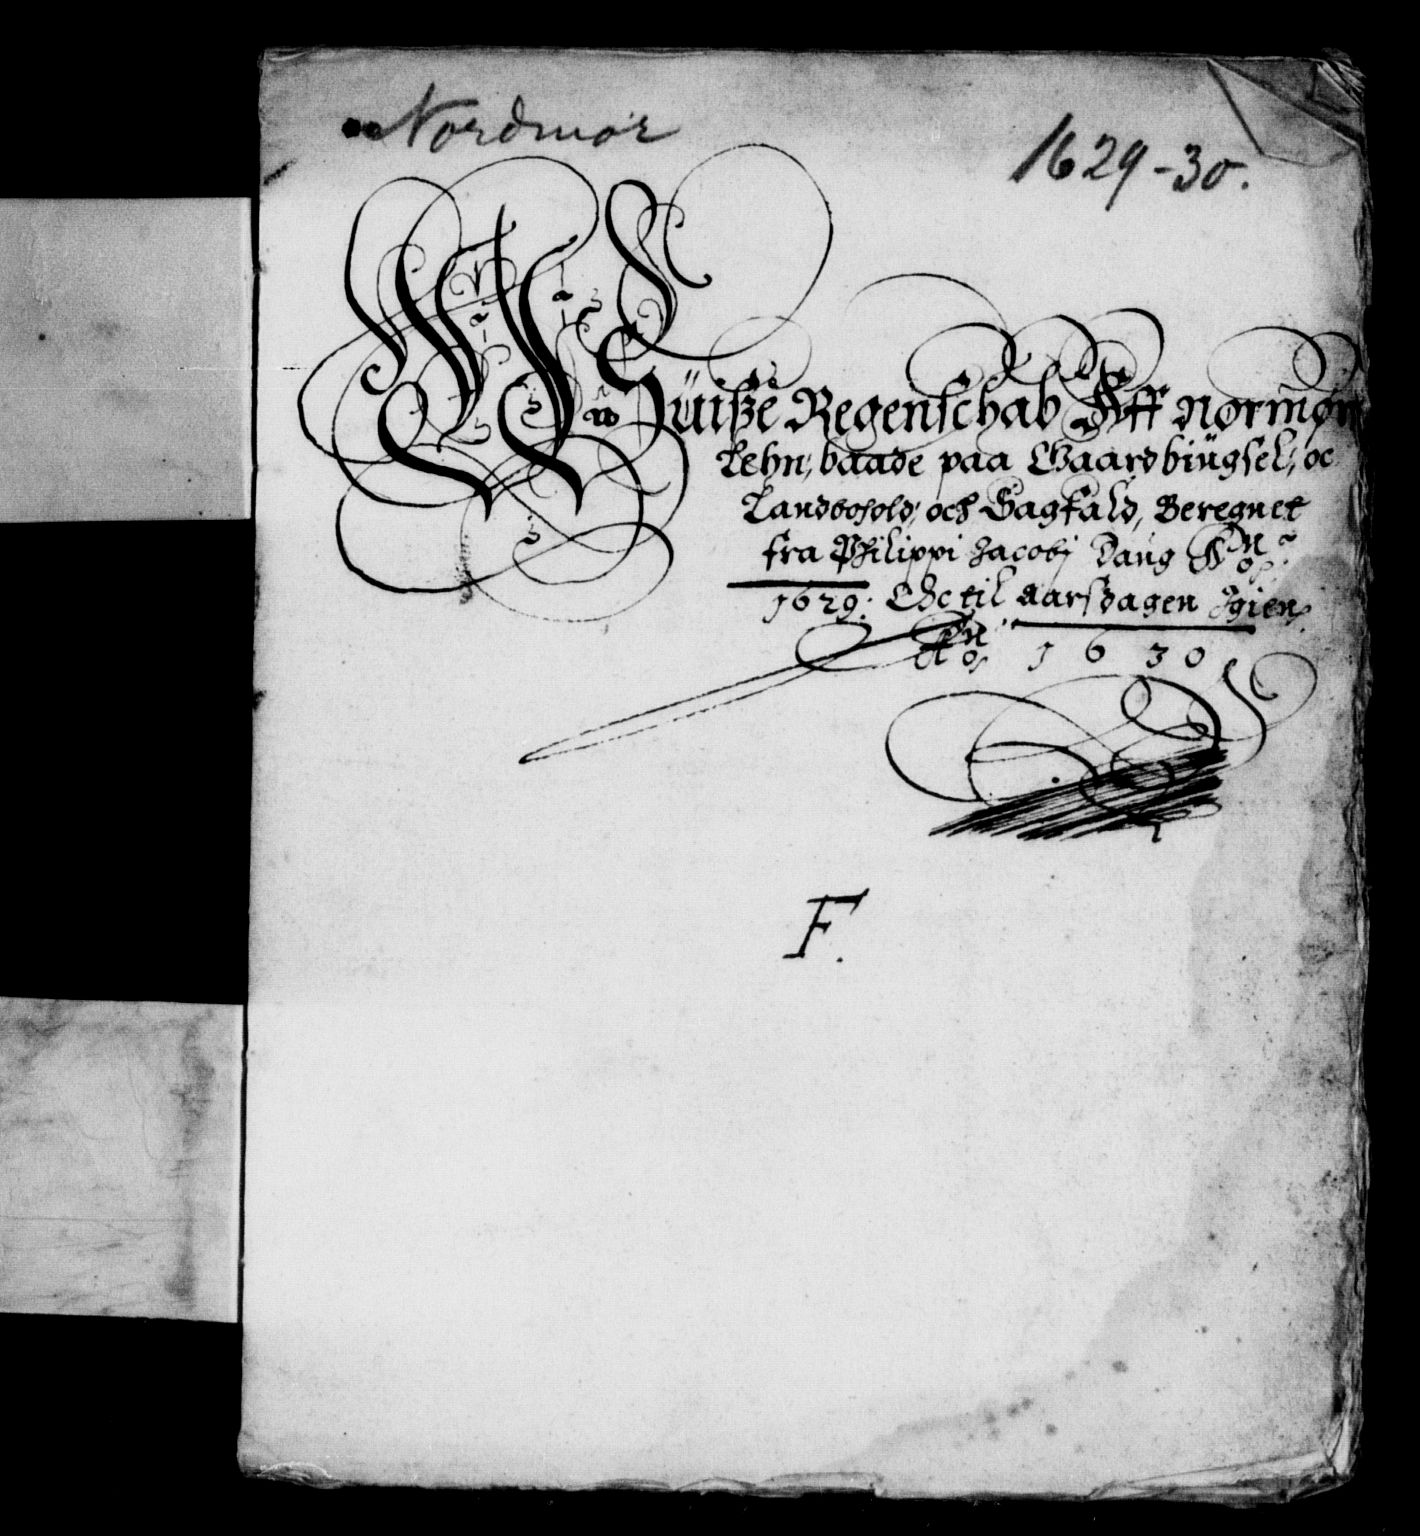 Nordmør
1629-30.
Wüisze Regenschab Aff Nørmør
Lehn, baade paa Gaardbiügsel, oc
Landbohold, och Sagfald, Beregnet
fra Philippi Jacobj Daug Anno
1629: Oc til aarsdagen Igien
Anno 1630
F.